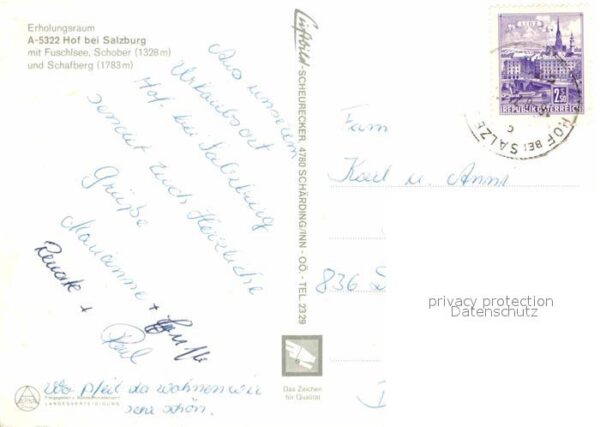 Erholungsraum
A-5322 Hof bei Salzburg
mit Fuschlsee, Schober (1328 m)
und Schafberg (1783 m)
Aus unserem
Urlaubsort
Hof bei Salzburg
sendet Euch Herzliche
Grüße
Marianne +
Renate +
Paul
Wo Pfeil da wohnen wir
sehr schön.
LANDESVERTEIDIGUNG
Luftbild-SCHEURECKER 4780 SCHÄRDING/INN - OÖ. - TEL. 2329
Das Zeichen
für Qualität
LINZ
2.50
REPUBLIK ÖSTERREICH
HOF BEI SALZB
Fam
Karl u. Anna
836 D
privacy protection
Datenschutz